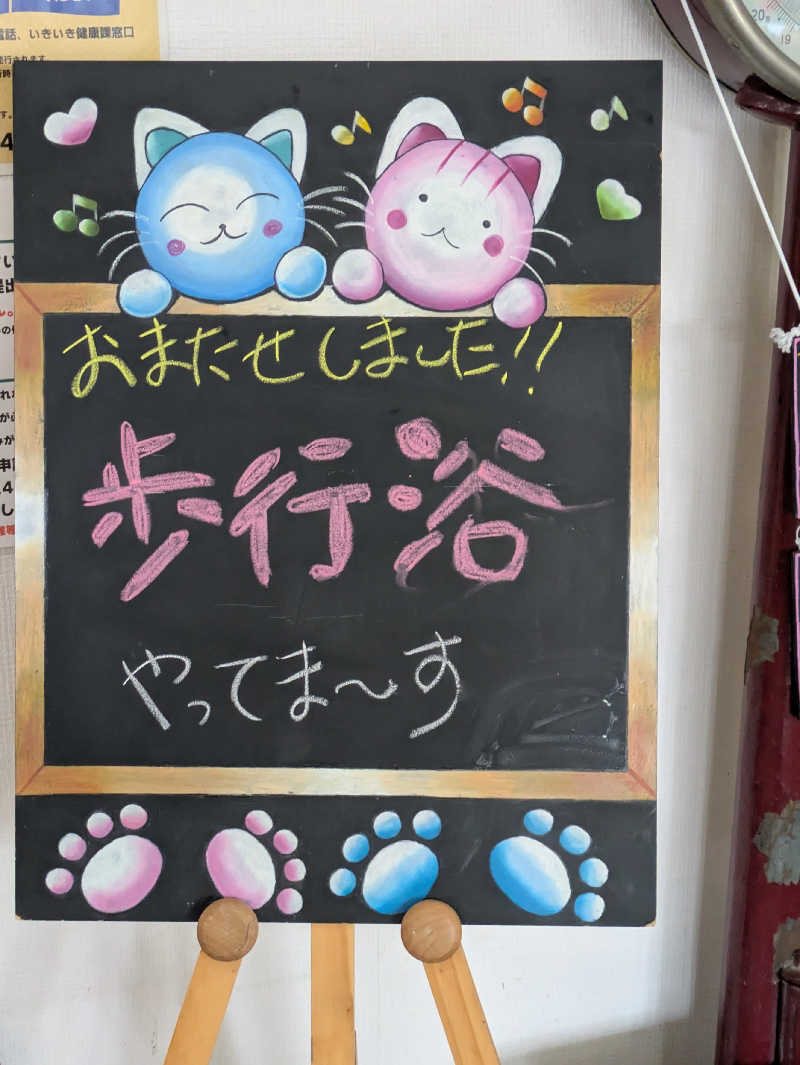 電話、いきいき健康課窓口
おまたせしました!!
歩行浴
やってま〜す
20
19